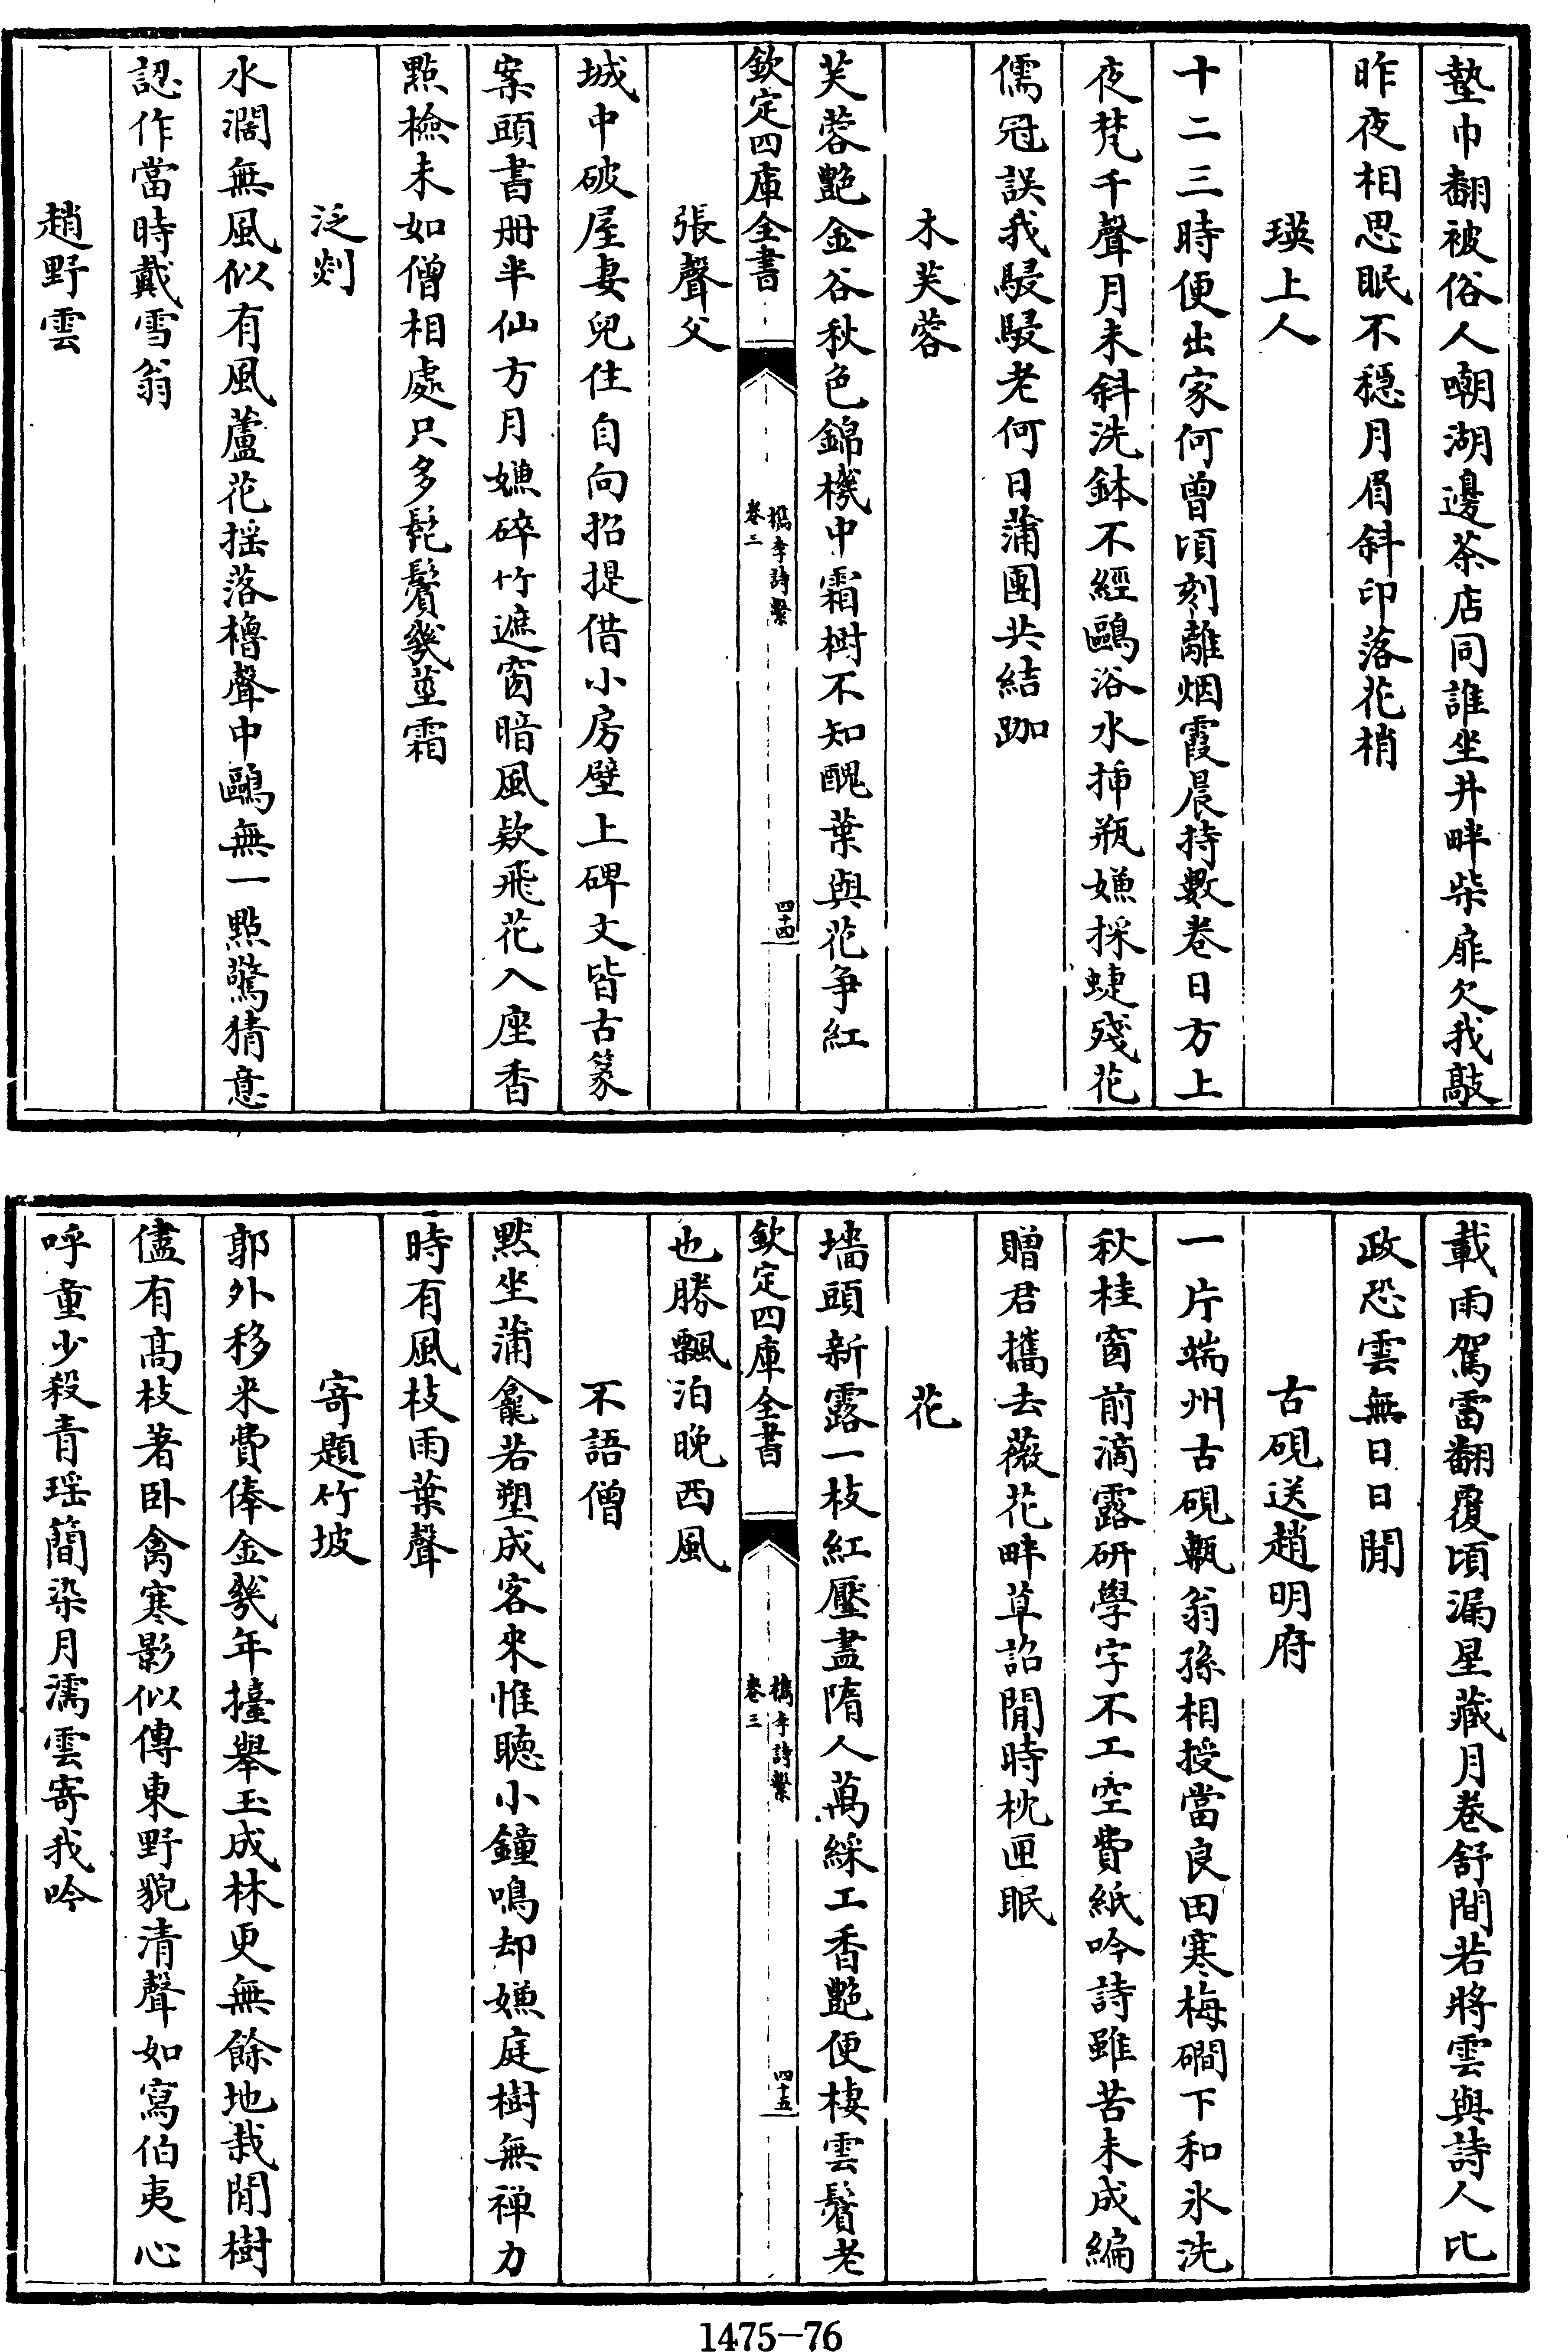 墊巾翻被俗人嘲湖邊茶店同誰坐井畔柴扉欠我敲
昨夜相思眠不穩月眉斜印落花梢
瑛上人
十二三時便出家何曾頃刻離烟霞晨持數卷日方上
夜梵千聲月未斜洗鉢不經鷗浴水挿瓶嫌採蜨殘花
儒冠誤我駸駸老何日蒲團共結跏
木芙蓉
芙蓉艷金谷秋色錦機中霜樹不知醜葉與花争紅
欽定四庫全書
檇李詩繫
卷三
四十四
張聲父
城中破屋妻兒住自向招提借小房壁上碑文皆古篆
案頭書册半仙方月嫌碎竹遮窗暗風欵飛花入座香
點檢未如僧相處只多髭鬢幾莖霜
泛剡
水濶無風似有風蘆花揺落櫓聲中鷗無一點驚猜意
認作當時戴雪翁
趙野雲
載雨駕雷翻覆頃漏星藏月卷舒間若將雲與詩人比
政恐雲無日日閒
古硯送趙明府
一片端州古硯甎翁孫相授當良田寒梅磵下和氷洗
秋桂窗前滴露研學字不工空費紙吟詩雖苦未成編
贈君攜去薇花畔草詔閒時枕匣眠
花
墻頭新露一枝紅壓盡隋人萬綵工香艷便棲雲鬢老
欽定四庫全書
檇李詩繫
卷三
四十五
也勝飄泊晚西風
不語僧
黙坐蒲龕若塑成客來惟聴小鐘鳴却嫌庭樹無禅力
時有風枝雨葉聲
寄題竹坡
郭外移来費俸金幾年擡舉玉成林更無餘地栽閒樹
儘有髙枝著卧禽寒影似傳東野貌清聲如寫伯夷心
呼童少殺青瑶簡染月濡雲寄我吟
1475-76